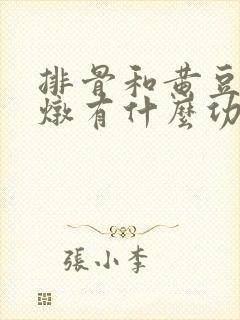 排骨和黄豆
燉有什麼功
張小李